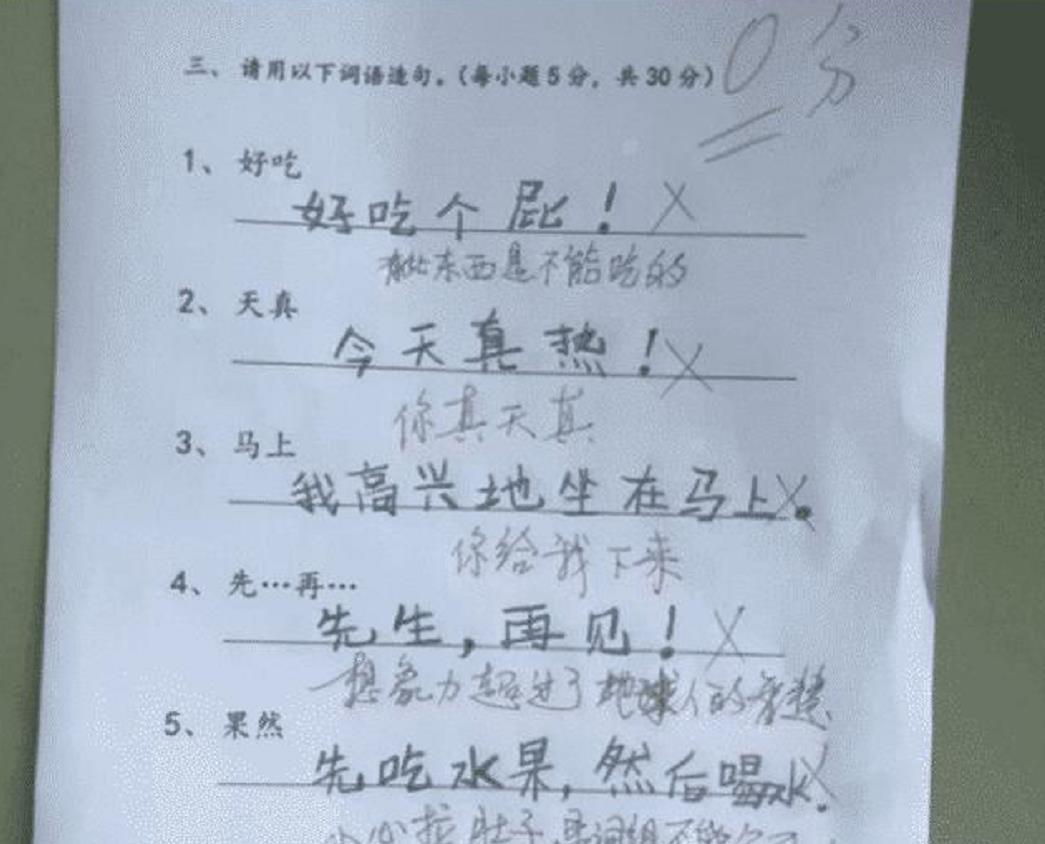 三、请用以下词语造句。(每小题5分，共30分) 0分
1、好吃
好吃个屁！
有些东西是不能吃的
2、天真
今天真热！
你真天真
3、马上
我高兴地坐在马上。
你给我下来
4、先…再…
先生，再见！
想象力超过了地球人的智慧
5、果然
先吃水果，然后喝水.
小心拉肚子,是词组不能分开